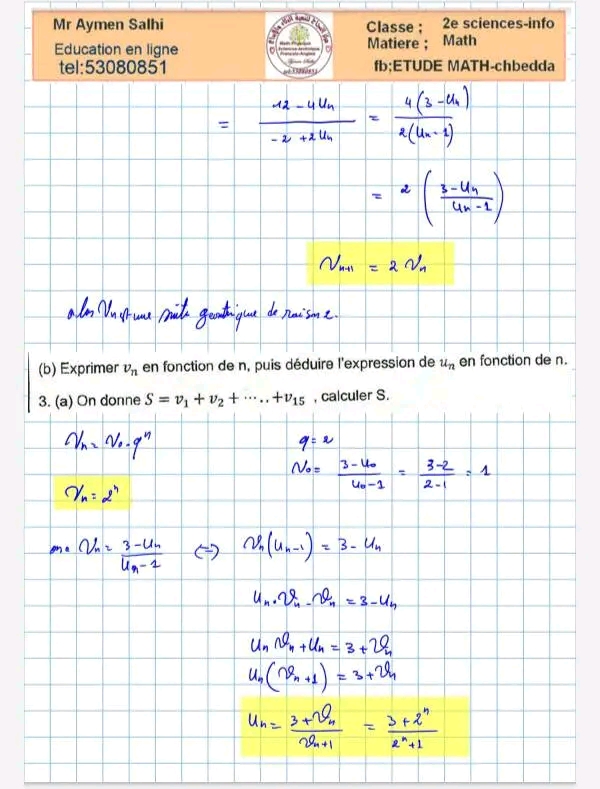 Mr Aymen Salhi
Education en ligne
tel:53080851
Classe ; 2e sciences-info
Matiere ; Math
fb;ETUDE MATH-chbedda
= (12 - 4Un)/(-2 + 2Un) = 4(3 - Un)/2(Un - 1)
= 2 ((3 - Un)/(Un - 1))
Vn+1 = 2 Vn
alors Vn est une suite geometrique de raison 2.
(b) Exprimer vn en fonction de n, puis déduire l'expression de un en fonction de n.
3. (a) On donne S = v1 + v2 + ⋯.. +v15 , calculer S.
Vn = V0 . q^n
q = 2
Vn = 2^n
V0 = (3 - U0)/(U0 - 1) = (3-2)/(2-1) = 1
Vn = (3 - Un)/(Un - 1) (=) Vn(Un - 1) = 3 - Un
Un . Vn - Vn = 3 - Un
Un Vn + Un = 3 + Vn
Un(Vn + 1) = 3 + Vn
Un = (3 + Vn)/(Vn + 1) = (3 + 2^n)/(2^n + 1)